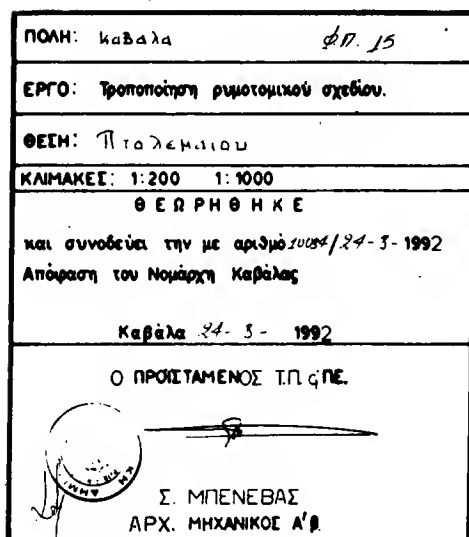 ΠΟΛΗ: Καβαλα Φ.Π. 15
ΕΡΓΟ: Τροποποίηση ρυμοτομικού σχεδίου.
ΘΕΣΗ: Πτολεμαιου
ΚΛΙΜΑΚΕΣ: 1:200 1:1000
ΘΕΩΡΗΘΗΚΕ
και συνοδεύει την με αριθμό /24-3-1992
Απόφαση του Νομάρχη Καβάλας
Καβάλα 24-3-1992
Ο ΠΡΟΪΣΤΑΜΕΝΟΣ Τ.Π. ς ΠΕ.
Σ. ΜΠΕΝΕΒΑΣ
ΑΡΧ. ΜΗΧΑΝΙΚΟΣ Α'β